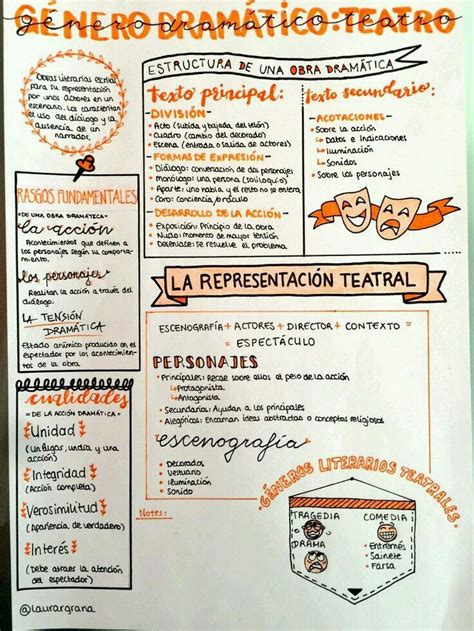 GÉNERO DRAMÁTICO: TEATRO
género dramático: teatro
Obras literarias escritas
para su representación
por unos actores en un
escenario. Las caracterizan
el uso del diálogo y la
ausencia de un
narrador.
RASGOS FUNDAMENTALES
DE UNA OBRA DRAMÁTICA
la acción
Acontecimientos que definen a
los personajes según su compor-
tamiento.
los personajes
Realizan la acción a través del
diálogo.
LA TENSIÓN
DRAMÁTICA
Estado anímico producido en el
espectador por los acontecimien-
tos de la obra
cualidades
DE LA ACCIÓN DRAMÁTICA
Unidad
(Un lugar, un día y una
acción)
Integridad
(Acción completa)
Verosimilitud
(Apariencia de verdadero)
Interés
(Debe atraer la atención
del espectador)
@laurargrana
ESTRUCTURA DE UNA OBRA DRAMÁTICA
texto principal:
- DIVISIÓN -
• Acto (subida y bajada del telón)
• Cuadro (cambio del decorado)
• Escena (entrada o salida de actores)
- FORMAS DE EXPRESIÓN -
• Diálogo: conversación de dos personajes
• Monólogo: una persona (soliloquio)
• Aparte: uno habla y el resto no se entera
• Coro: conciencia, oráculo
- DESARROLLO DE LA ACCIÓN -
• Exposición: Principio de la obra
• Nudo: momento de mayor tensión
• Desenlace: se resuelve el problema
texto secundario:
- ACOTACIONES -
• Sobre la acción
Datos e indicaciones
Iluminación
Sonidos
• Sobre los personajes
LA REPRESENTACIÓN TEATRAL
ESCENOGRAFÍA + ACTORES + DIRECTOR + CONTEXTO =
= ESPECTÁCULO
PERSONAJES
• Principales: Recae sobre ellos el peso de la acción
Protagonista
Antagonista
• Secundarios: Ayudan a los principales
• Alegóricos: Encarnan ideas abstractas o conceptos religiosos
escenografía
• Decorados
• Vestuario
• Iluminación
• Sonido
Notes:
GÉNEROS LITERARIOS TEATRALES
TRAGEDIA
DRAMA
COMEDIA
Entremés
Sainete
Farsa